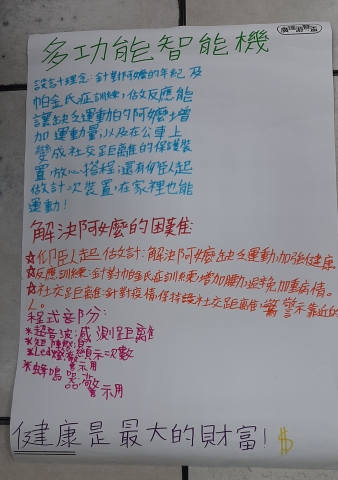 多功能智能機
設計理念:針對阿嬤的年紀及
帕金氏症訓練,做反應能
讓缺乏運動的阿嬤增
加運動量,以及在公車上
變成社交距離的保護裝
置,放心搭程;還有仰臥起
做計次裝置,在家裡也能
運動!
解決阿嬤的困難
☆仰臥起做計:解決阿嬤缺乏運動,加強健康。
☆反應訓練:針對帕金氏症訓練,增加腦力,避免加重病情。
☆社交距離:針對疫情,保持社交距離,警示靠近的
人。
程式部分:
*超音波:感測距離
*矩陣
*Led燈 顯示次數
警示用
*蜂鳴器
警示用
健康是最大的財富!$